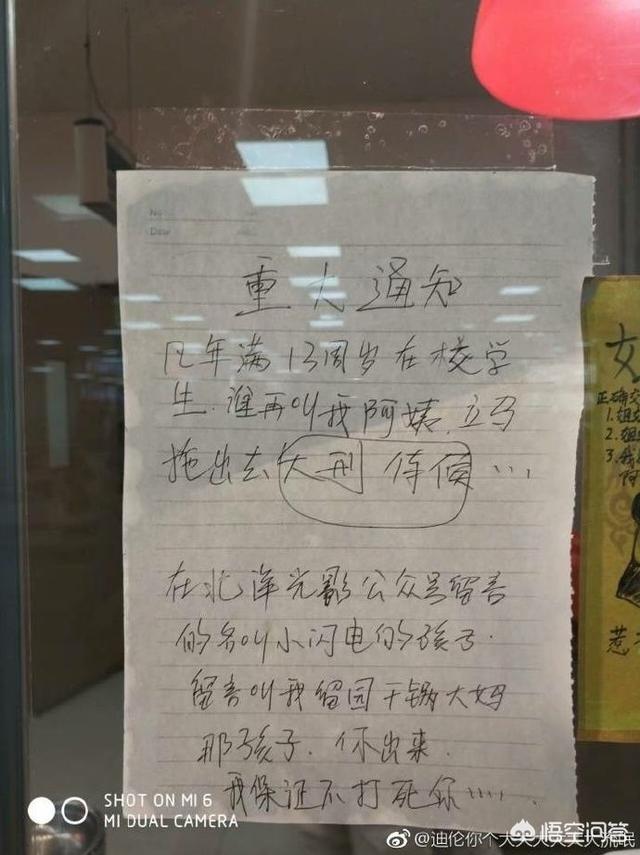 No
Date
重大通知
凡年满13周岁在校学
生.谁再叫我阿姨.立马
拖出去大刑侍候...
在北洋光影公众号留言
的名叫小闪电的孩子.
留言叫我留园干锅大妈
那孩子.你出来.
我保证不打死你......
女
正确交
1.姐
2.姐
3.我
阿
惹
SHOT ON MI 6
MI DUAL CAMERA
悟空问答